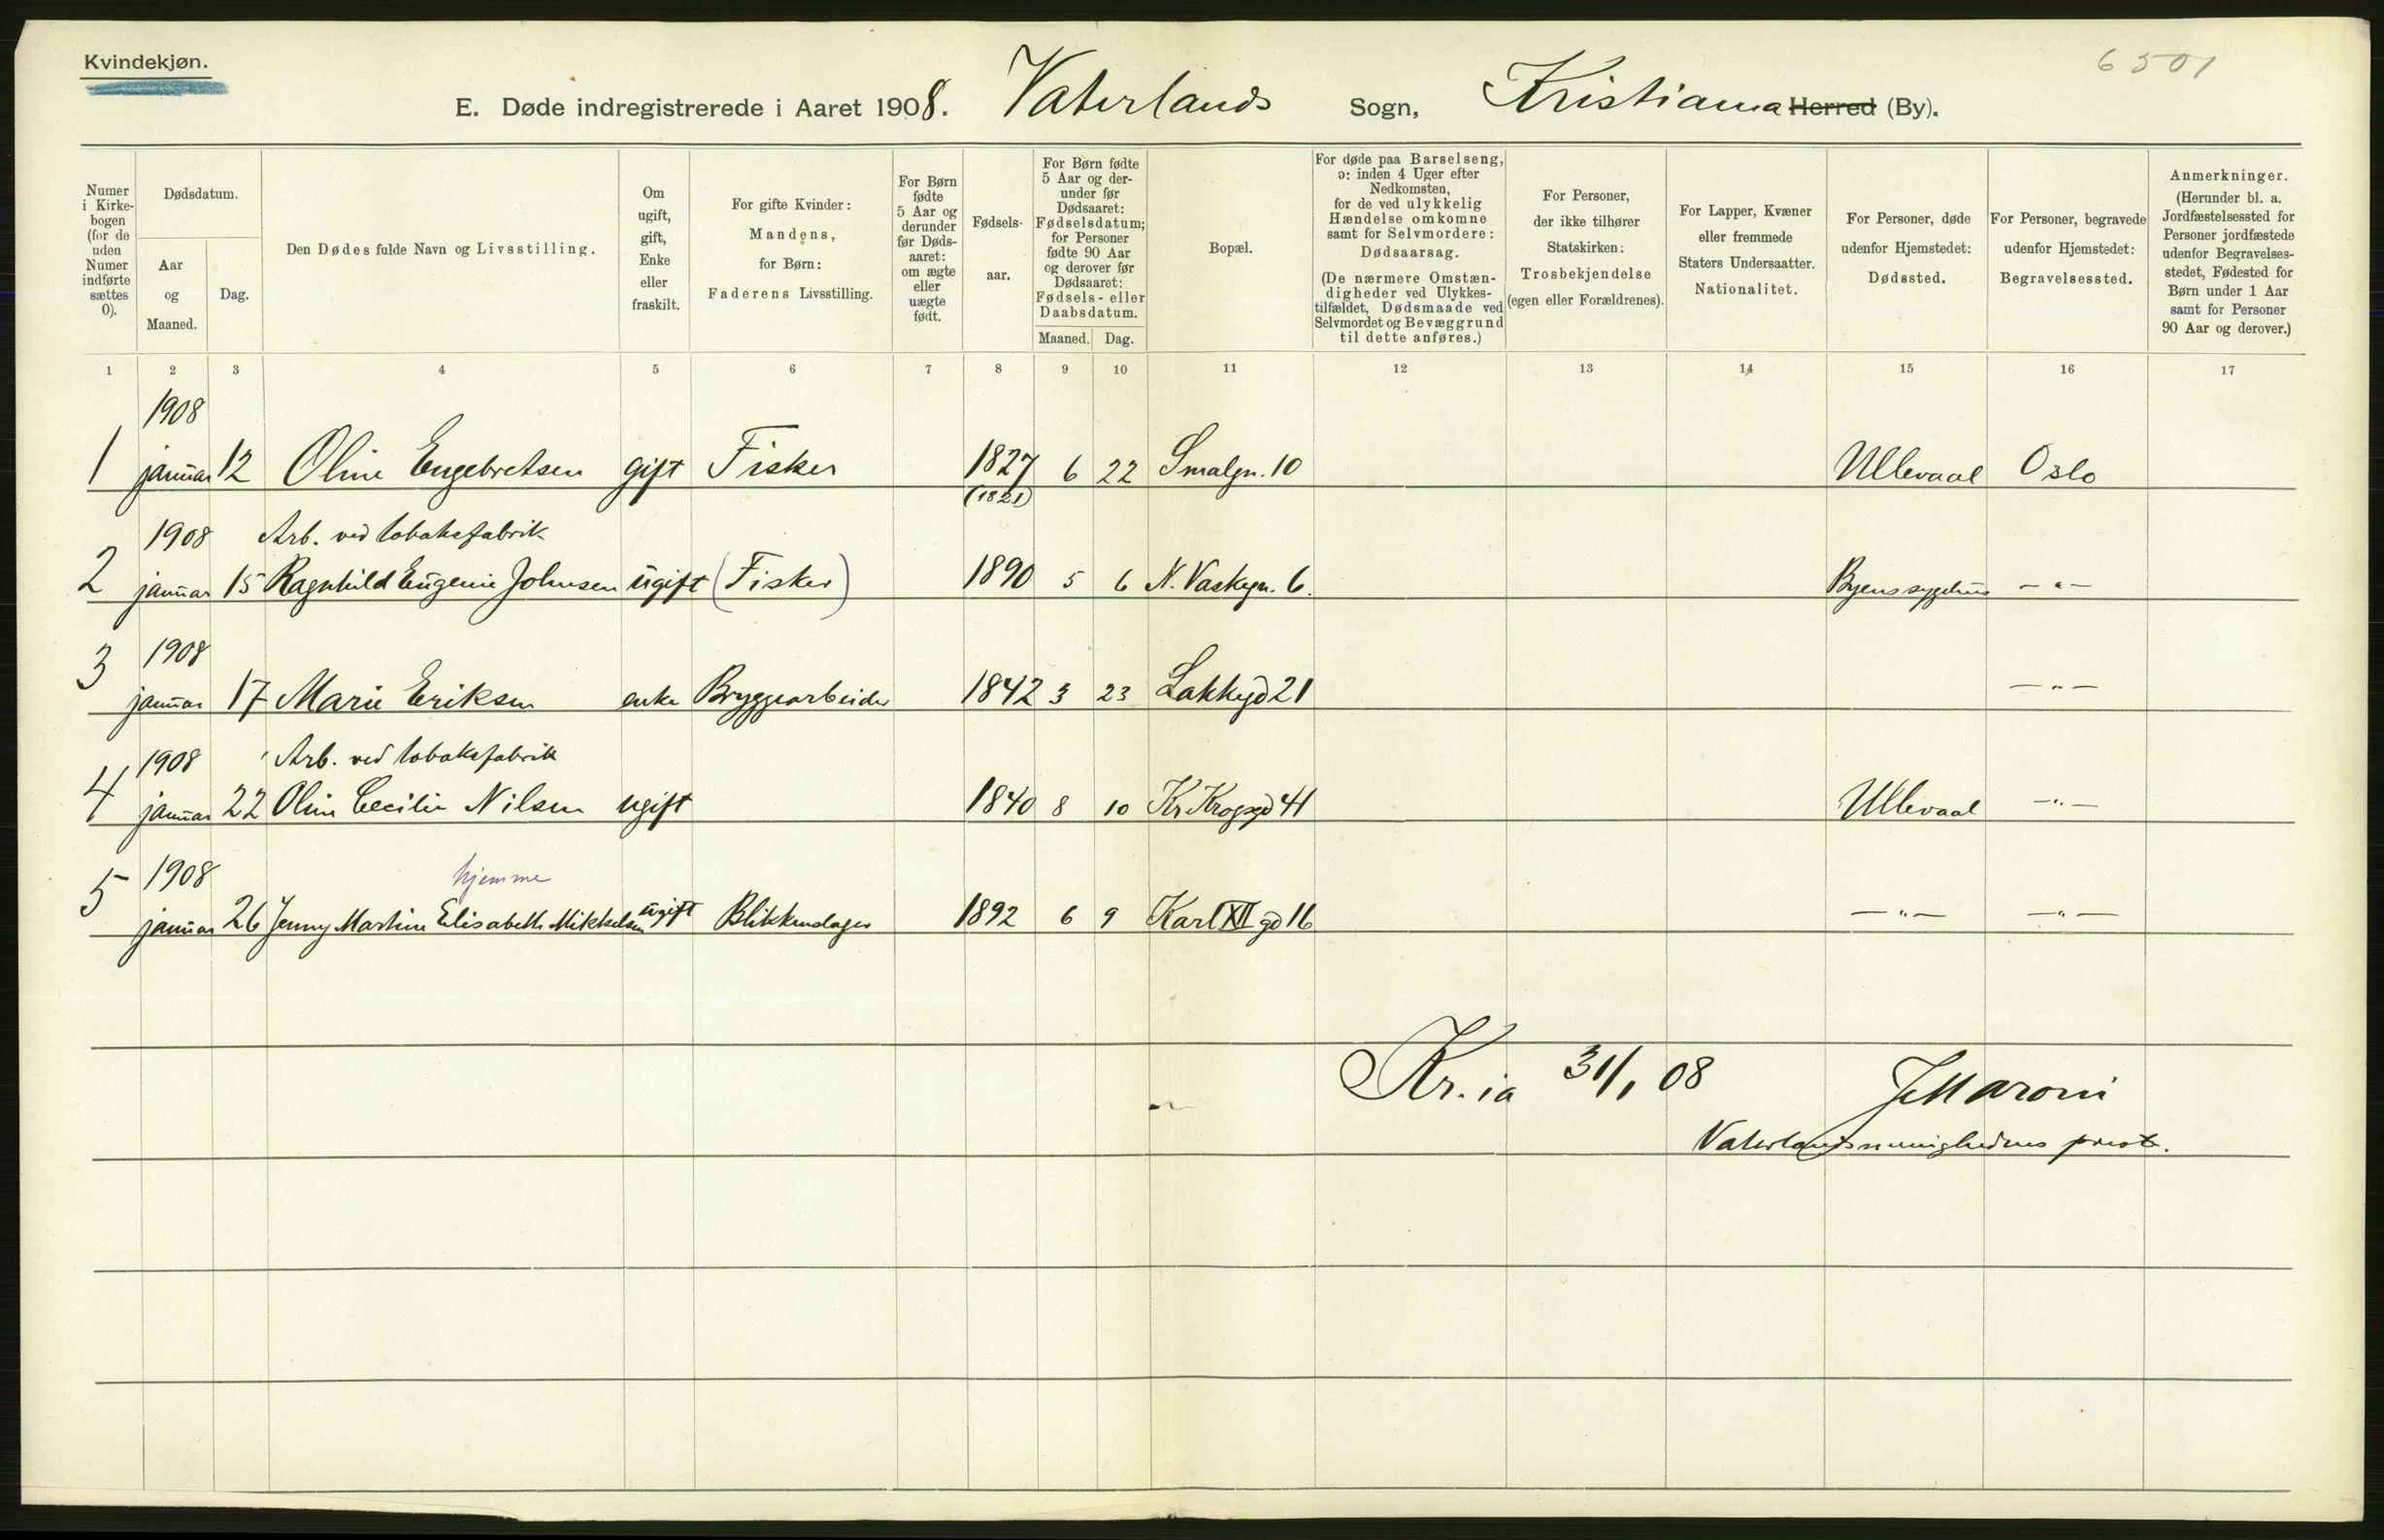 Kvindekjøn.
6501
E. Døde indregistrerede i Aaret 1908. Vaterlands Sogn, Kristiania Herred (By).
Numer i Kirke-bogen (for de uden Numer indførte sættes 0).
Dødsdatum.
Aar og Maaned.
Dag.
Den Dødes fulde Navn og Livsstilling.
Om ugift, gift, Enke eller fraskilt.
For gifte Kvinder: Mandens, for Børn: Faderens Livsstilling.
For Børn fødte 5 Aar og derunder før Døds-aaret: om ægte eller uægte født.
Fødsels-aar.
For Børn fødte 5 Aar og der-under før Dødsaaret: Fødselsdatum; for Personer fødte 90 Aar og derover før Dødsaaret: Fødsels- eller Daabsdatum.
Maaned. Dag.
Bopæl.
For døde paa Barselseng, ɔ: inden 4 Uger efter Nedkomsten, for de ved ulykkelig Hændelse omkomne samt for Selvmordere: Dødsaarsag. (De nærmere Omstæn-digheder ved Ulykkes-tilfældet, Dødsmaade ved Selvmordet og Bevæggrund til dette anføres.)
For Personer, der ikke tilhører Statskirken: Trosbekjendelse (egen eller Forældrenes).
For Lapper, Kvæner eller fremmede Staters Undersaatter. Nationalitet.
For Personer, døde udenfor Hjemstedet: Dødssted.
For Personer, begravede udenfor Hjemstedet: Begravelsessted.
Anmerkninger. (Herunder bl. a. Jordfæstelsessted for Personer jordfæstede udenfor Begravelses-stedet, Fødested for Børn under 1 Aar samt for Personer 90 Aar og derover.)
1 2 3 4 5 6 7 8 9 10 11 12 13 14 15 16 17
1908
1 januar 12 Oline Engebretsen gift Fisker 1827 6 22 Smalgn. 10 Ullevaal Oslo
(1821)
1908 Arb. ved tobaksfabrik
2 januar 15 Ragnhild Eugenie Johnsen ugift (Fisker) 1890 5 6 N. Vaskegn. 6. Byens sygehus —"—
1908
3 januar 17 Marie Eriksen enke Bryggearbeider 1842 3 23 Lakkegd 21 —"—
1908 Arb. ved tobaksfabrik
4 januar 22 Oline Cecilie Nilsen ugift 1840 8 10 Kr. Krogsgd 41 Ullevaal —"—
1908 hjemme
5 januar 26 Jenny Martine Elisabeth Mikkelsen ugift Blikkenslager 1892 6 9 Karl XII gd 16 —"— —"—
Kr.ia 31/1 08
Maroni
Vaterlandsmenighedens prest.